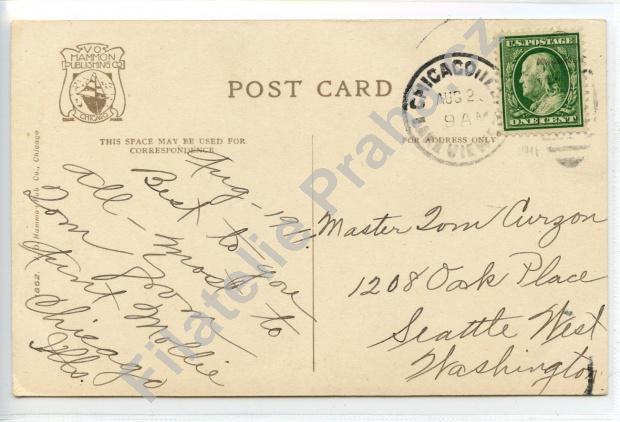 V.O.
HAMMON
PUBLISHING CO.
CHICAGO
POST CARD
THIS SPACE MAY BE USED FOR
CORRESPONDENCE
FOR ADDRESS ONLY
CHICAGO, ILL.
AUG 2
9 AM
LAKE VIEW
U.S. POSTAGE
ONE CENT
Hammon Pub Co., Chicago
Aug-19
Best to you
all - most to
Tom from
Aunt Mollie
Chicago
Ills.
Master Tom Curzon
1208 Oak Place
Seattle West
Washington
Filatelie Praha.cz